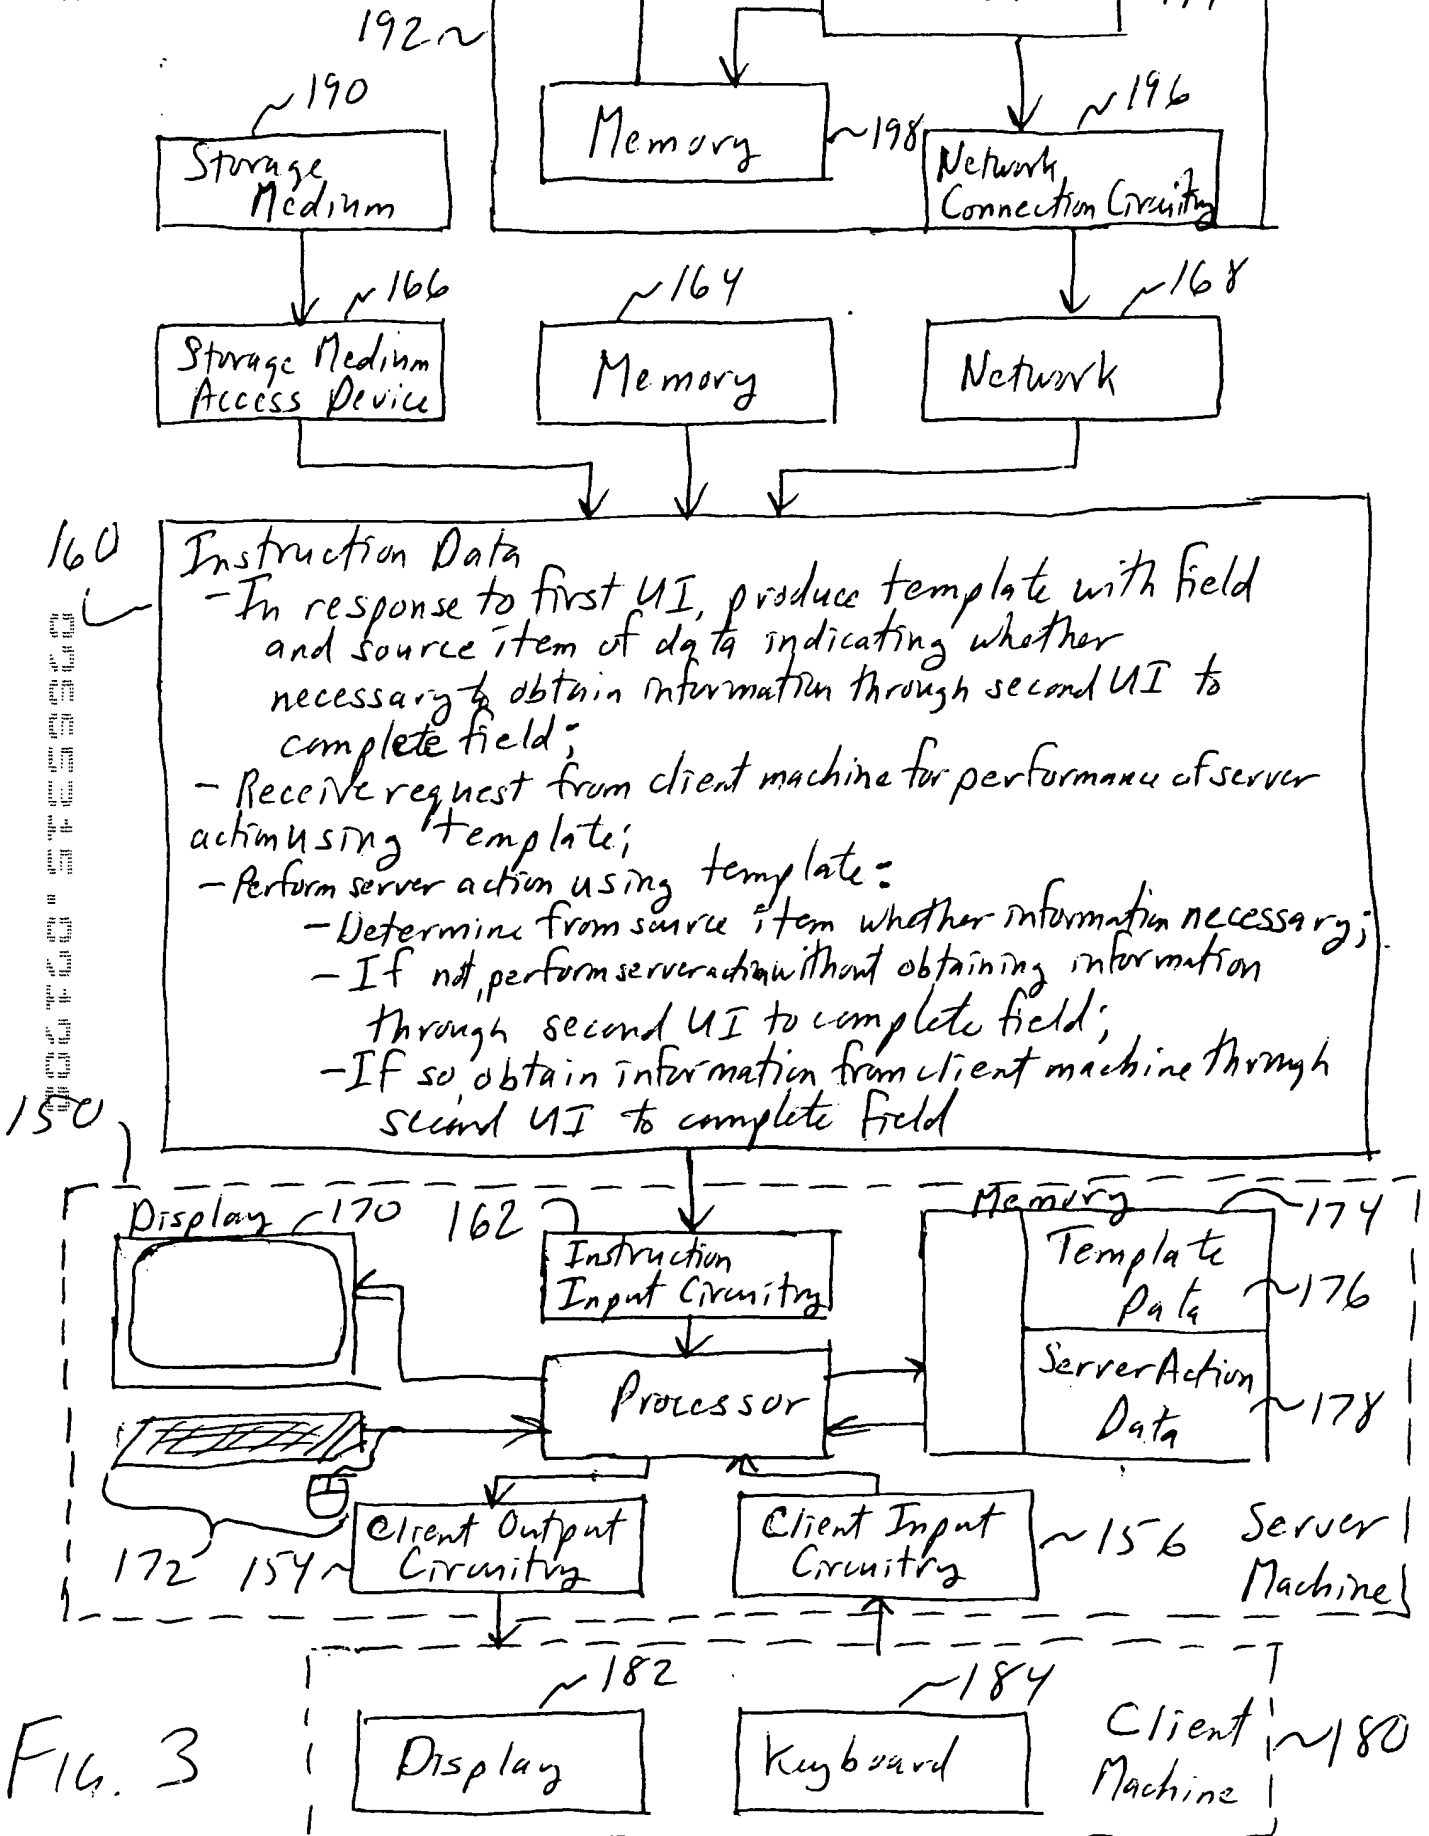 192
190
Storage
Medium
Memory
198
196
Network
Connection Circuitry
166
164
168
Storage Medium
Access Device
Memory
Network
160
Instruction Data
- In response to first UI, produce template with field
and source item of data indicating whether
necessary to obtain information through second UI to
complete field;
- Receive request from client machine for performance of server
action using template;
- Perform server action using template:
- Determine from source item whether information necessary;
- If not, perform server action without obtaining information
through second UI to complete field;
- If so, obtain information from client machine through
second UI to complete field
150
Display
170
162
Instruction
Input Circuitry
Memory
174
Template
Data
176
Processor
Server Action
Data
178
172
154
Client Output
Circuitry
Client Input
Circuitry
156
Server
Machine
182
184
Display
Keyboard
Client
Machine
180
FIG. 3